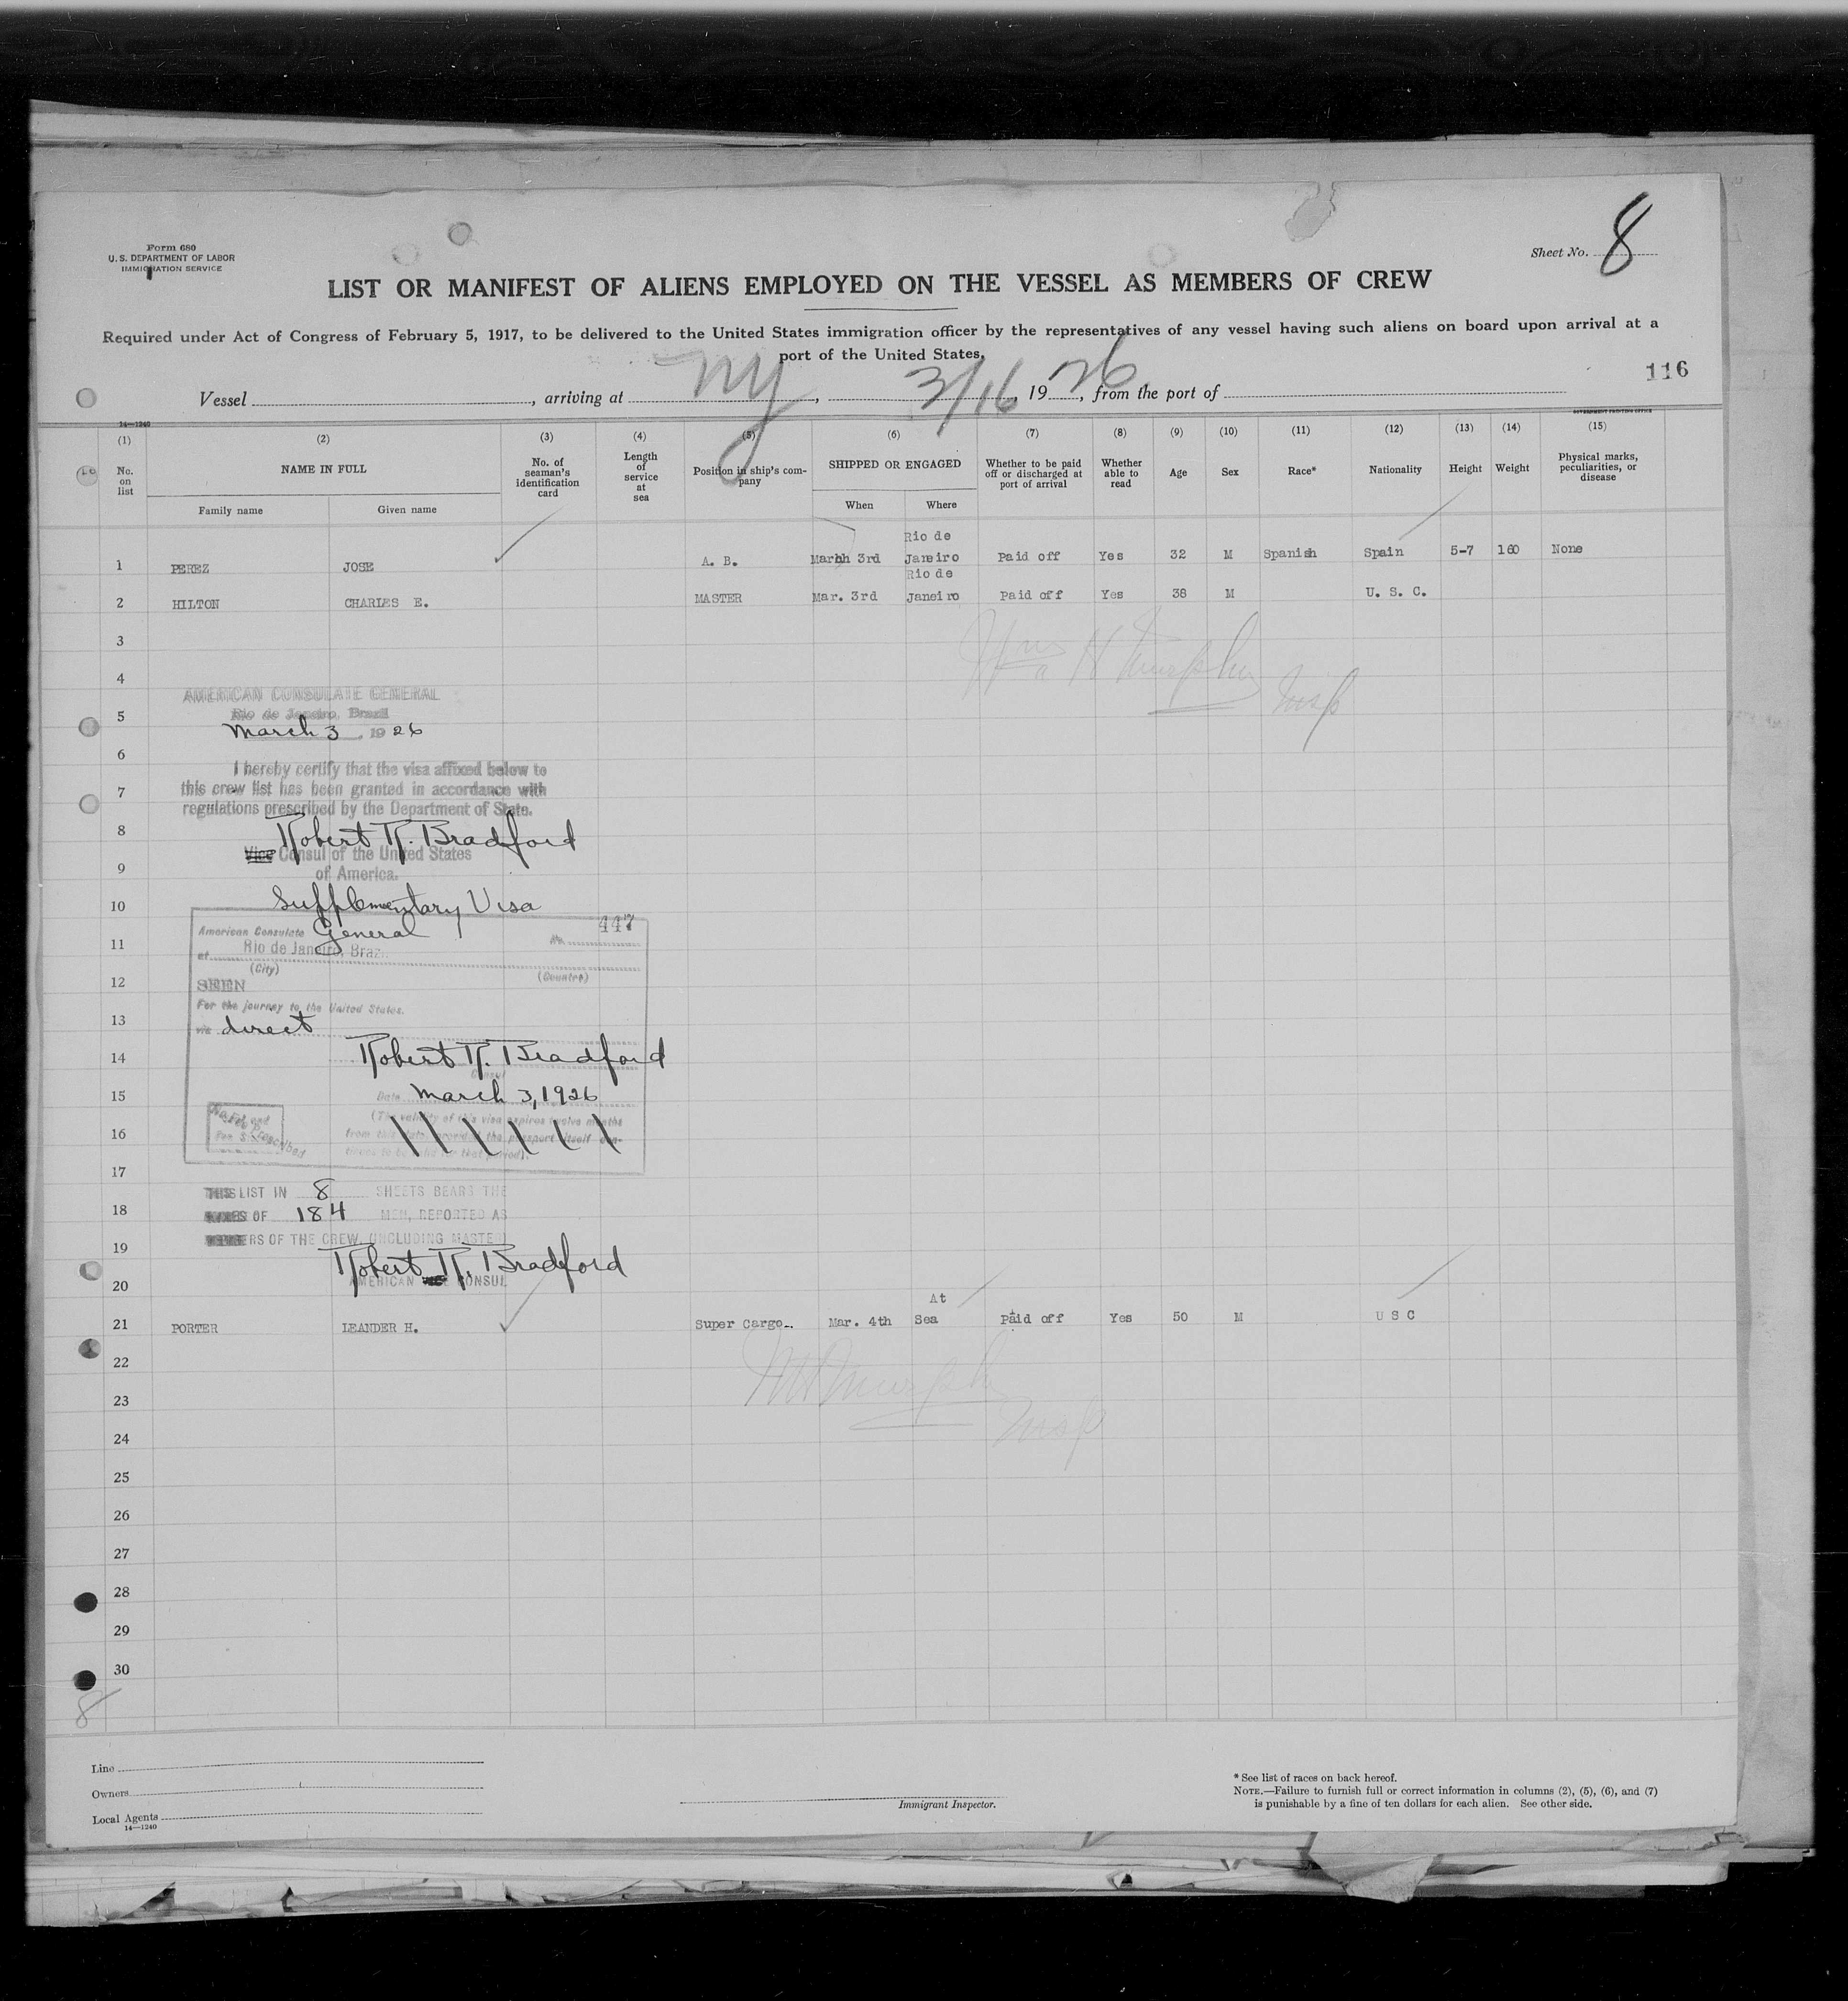 Form 680
U. S. DEPARTMENT OF LABOR
IMMIGRATION SERVICE
Sheet No. 8
LIST OR MANIFEST OF ALIENS EMPLOYED ON THE VESSEL AS MEMBERS OF CREW
Required under Act of Congress of February 5, 1917, to be delivered to the United States immigration officer by the representatives of any vessel having such aliens on board upon arrival at a
port of the United States.
116
Vessel , arriving at NY , 3/16 , 1926 , from the port of
14—1240
GOVERNMENT PRINTING OFFICE
(1) (2) (3) (4) (5) (6) (7) (8) (9) (10) (11) (12) (13) (14) (15)
No. on list
NAME IN FULL
Family name
Given name
No. of seaman's identification card
Length of service at sea
Position in ship's company
SHIPPED OR ENGAGED
When
Where
Whether to be paid off or discharged at port of arrival
Whether able to read
Age
Sex
Race*
Nationality
Height
Weight
Physical marks, peculiarities, or disease
1 PEREZ JOSE A. B. March 3rd Rio de Janeiro Paid off Yes 32 M Spanish Spain 5-7 160 None
2 HILTON CHARLES E. MASTER Mar. 3rd Rio de Janeiro Paid off Yes 38 M U. S. C.
3
Wm H Murphy
Insp
4
AMERICAN CONSULATE GENERAL
5
Rio de Janeiro, Brazil
March 3, 1926
6
I hereby certify that the visa affixed below to
7
this crew list has been granted in accordance with
regulations prescribed by the Department of State.
8
Robert R. Bradford
Vice Consul of the United States
9
of America.
10
Supplementary Visa
American Consulate General
No. 447
11
at Rio de Janeiro, Braz
(City)
(Country)
12
SEEN
For the journey to the United States.
13
via direct
14
Robert R. Bradford
Consul
15
Date March 3, 1926
(The validity of this visa expires twelve months
16
from this date provided the passport itself con-
tinues to be valid for that period).
No Fee Prescribed
17
THIS LIST IN 8 SHEETS BEARS THE
18
NAMES OF 184 MEN, REPORTED AS
19
MEMBERS OF THE CREW, (INCLUDING MASTER)
Robert R. Bradford
20
AMERICAN VICE CONSUL
21 PORTER LEANDER H. Super Cargo. Mar. 4th At Sea Paid off Yes 50 M U S C
22
WH Murphy
23
Insp
24
25
26
27
28
29
30
8
Line
Owners
Local Agents
14—1240
Immigrant Inspector.
* See list of races on back hereof.
NOTE.—Failure to furnish full or correct information in columns (2), (5), (6), and (7)
is punishable by a fine of ten dollars for each alien. See other side.